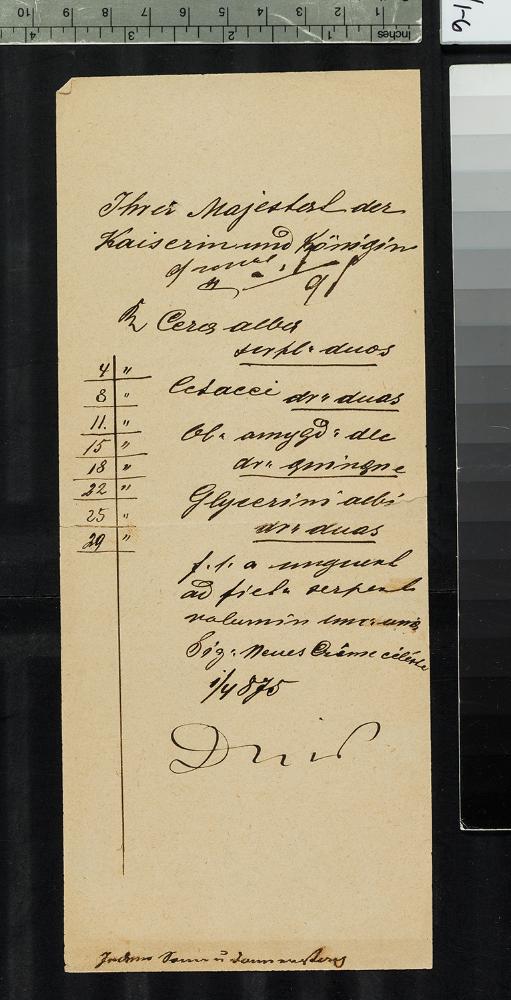 Ihrer Majestät der
Kaiserin und Königin
Rp Cera alba
scrpl. duos
Cetacei dr. duas
Ol. amygd. dlc
dr. quinque
Glycerini albi
dr. duas
f. l. a unguent
ad fict. serpent
volumin unc. unis
Sig. Neues Crême céleste
1/4 875
4 "
8 "
11. "
15 "
18 "
22 "
25 "
29 "